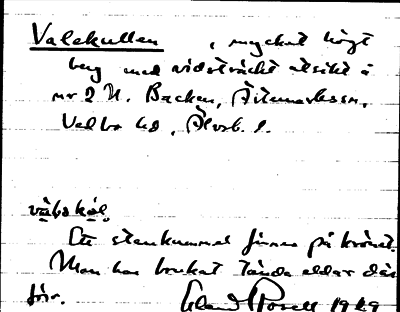 Valekullen, mycket högt
berg med vidsträckt utsikt å
nr 2 N. Backen, Ärtemarks sn,
Vedbo hd, Älvsb. l.
våbəkál.
Ett stenkummel finns på krönet.
Man har brukat tända eldar där
förr. Erland Rosell 1949